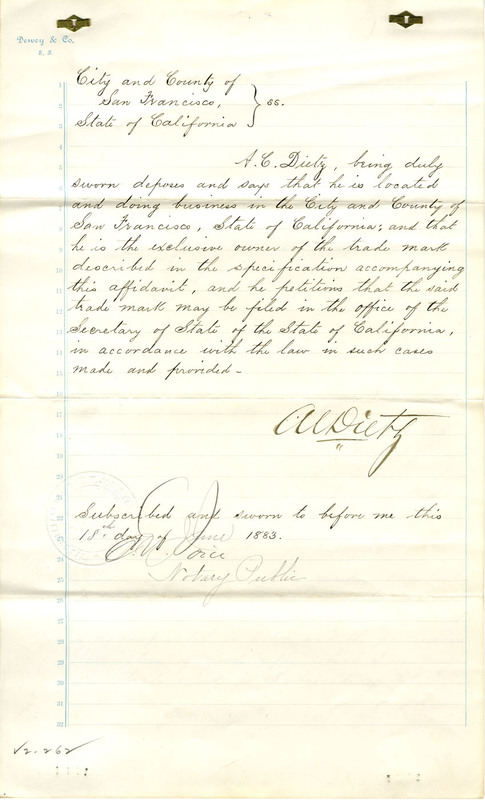 Dewey & Co.
S. F.
City and County of
San Francisco, } ss.
State of California
A. C. Dietz, being duly
sworn deposes and says that he is located
and doing business in the City and County of
San Francisco, State of California; and that
he is the exclusive owner of the trade mark
described in the specification accompanying
this affidavit, and he petitions that the said
trade mark may be filed in the office of the
Secretary of State of the State of California,
in accordance with the law in such cases
made and provided-
A C Dietz
Subscribed and sworn to before me this
18th day of June 1883.
Notary Public
1
2
3
4
5
6
7
8
9
10
11
12
13
14
15
16
17
18
19
20
21
22
23
24
25
26
27
28
29
30
31
32